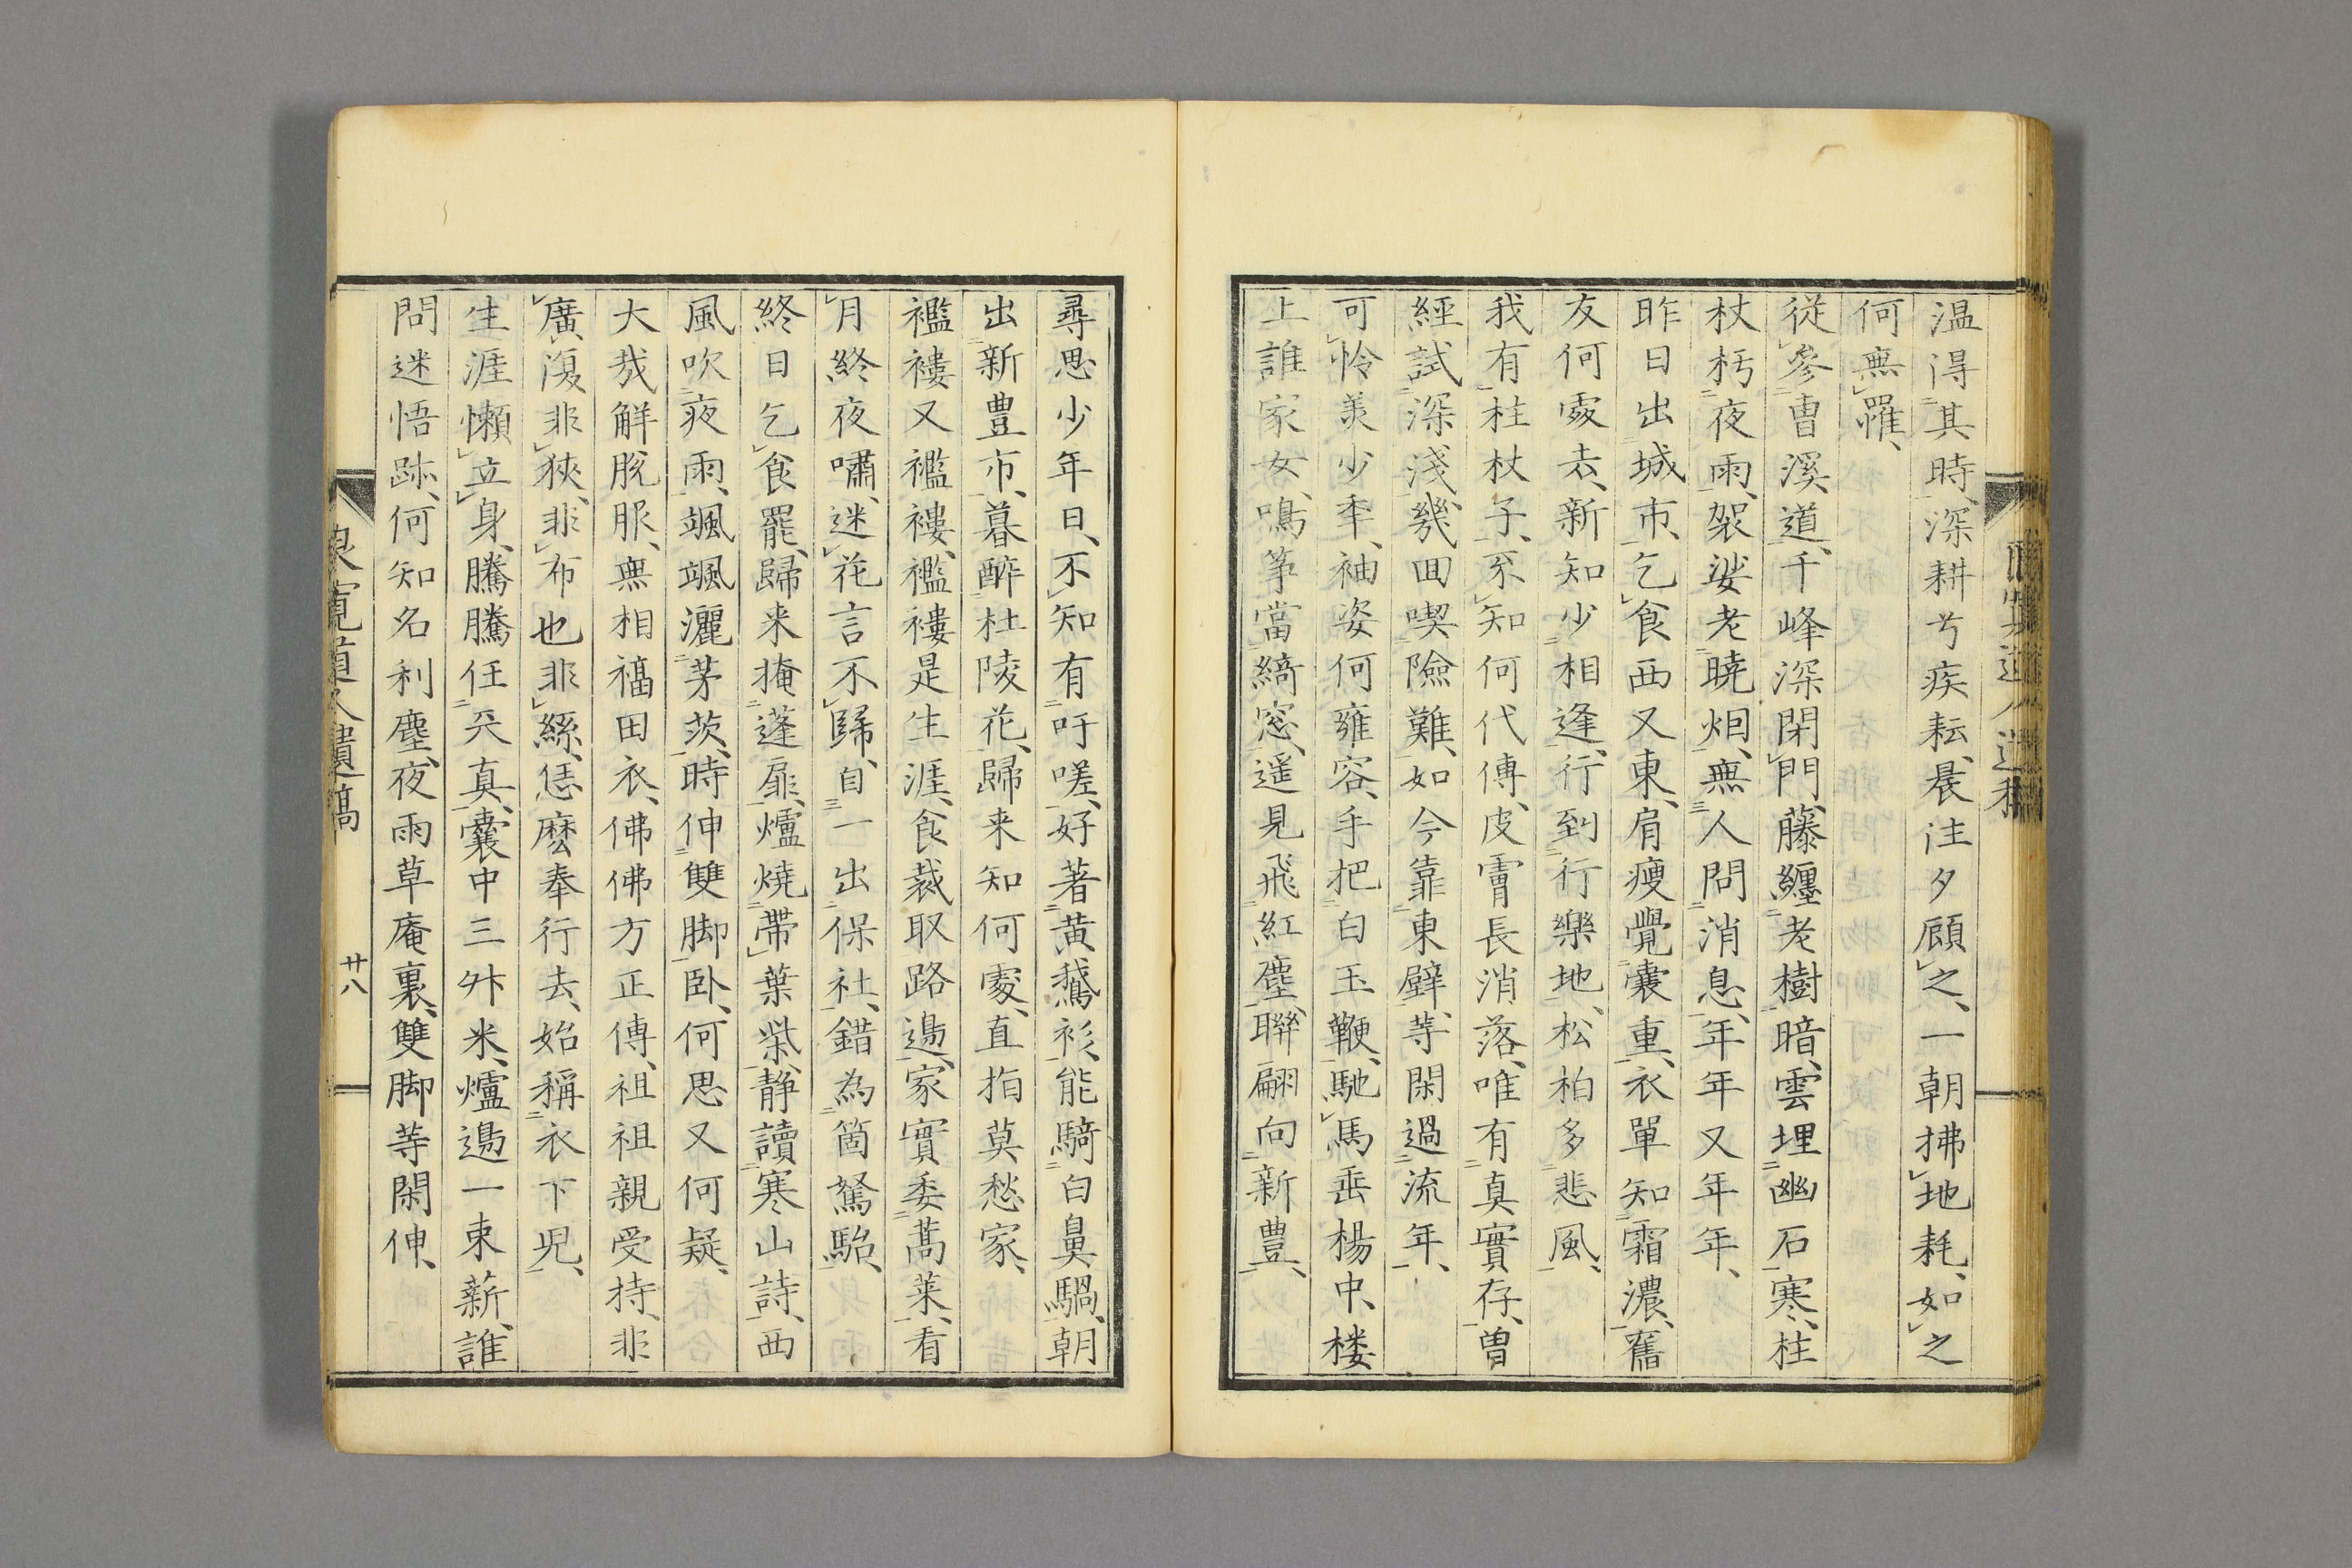 温得其時、深耕兮疾耘、晨往夕顧之、一朝拂地耗、如之
何無罹、
従參曹溪道、千峰深閉門、藤纏老樹暗、雲埋幽石寒、柱
杖朽夜雨、袈裟老暁烟、無人問消息、年年又年年、
昨日出城市、乞食西又東、肩瘦覺囊重、衣單知霜濃、舊
友何處去、新知少相逢、行到行樂地、松柏多悲風、
我有柱杖子、不知何代傳、皮膚長消落、唯有真實存、曽
經試深淺、幾回喫險難、如今靠東壁、等閑過流年、
可怜美少年、袖姿何雍容、手把白玉鞭、馳馬垂楊中、楼
上誰家女、鳴筝當綺窓、遥見飛紅塵、聯翩向新豊、
尋思少年日、不知有吁嗟、好著黄鵞衫、能騎白鼻騧、朝
出新豊市、暮醉杜陵花、歸来知何處、直指莫愁家、
襤褸又襤褸、襤褸是生涯、食裁取路邊、家實委蒿莱、看
月終夜嘯、迷花言不歸、自一出保社、錯為箇駑駘、
終日乞食罷、歸来掩蓬扉、爐燒帶葉柴、静讀寒山詩、西
風吹夜雨、颯颯灑茅茨、時伸雙脚卧、何思又何疑、
大哉解脱服、無相福田衣、佛佛方正傳、祖祖親受持、非
廣復非狹、非布也非絲、恁麽奉行去、始稱衣下児、
生涯懶立身、騰騰任天真、囊中三升米、爐邊一束薪、誰
問迷悟跡、何知名利塵、夜雨草庵裏、雙脚等閑伸、
良寛道人遺稿
廿八